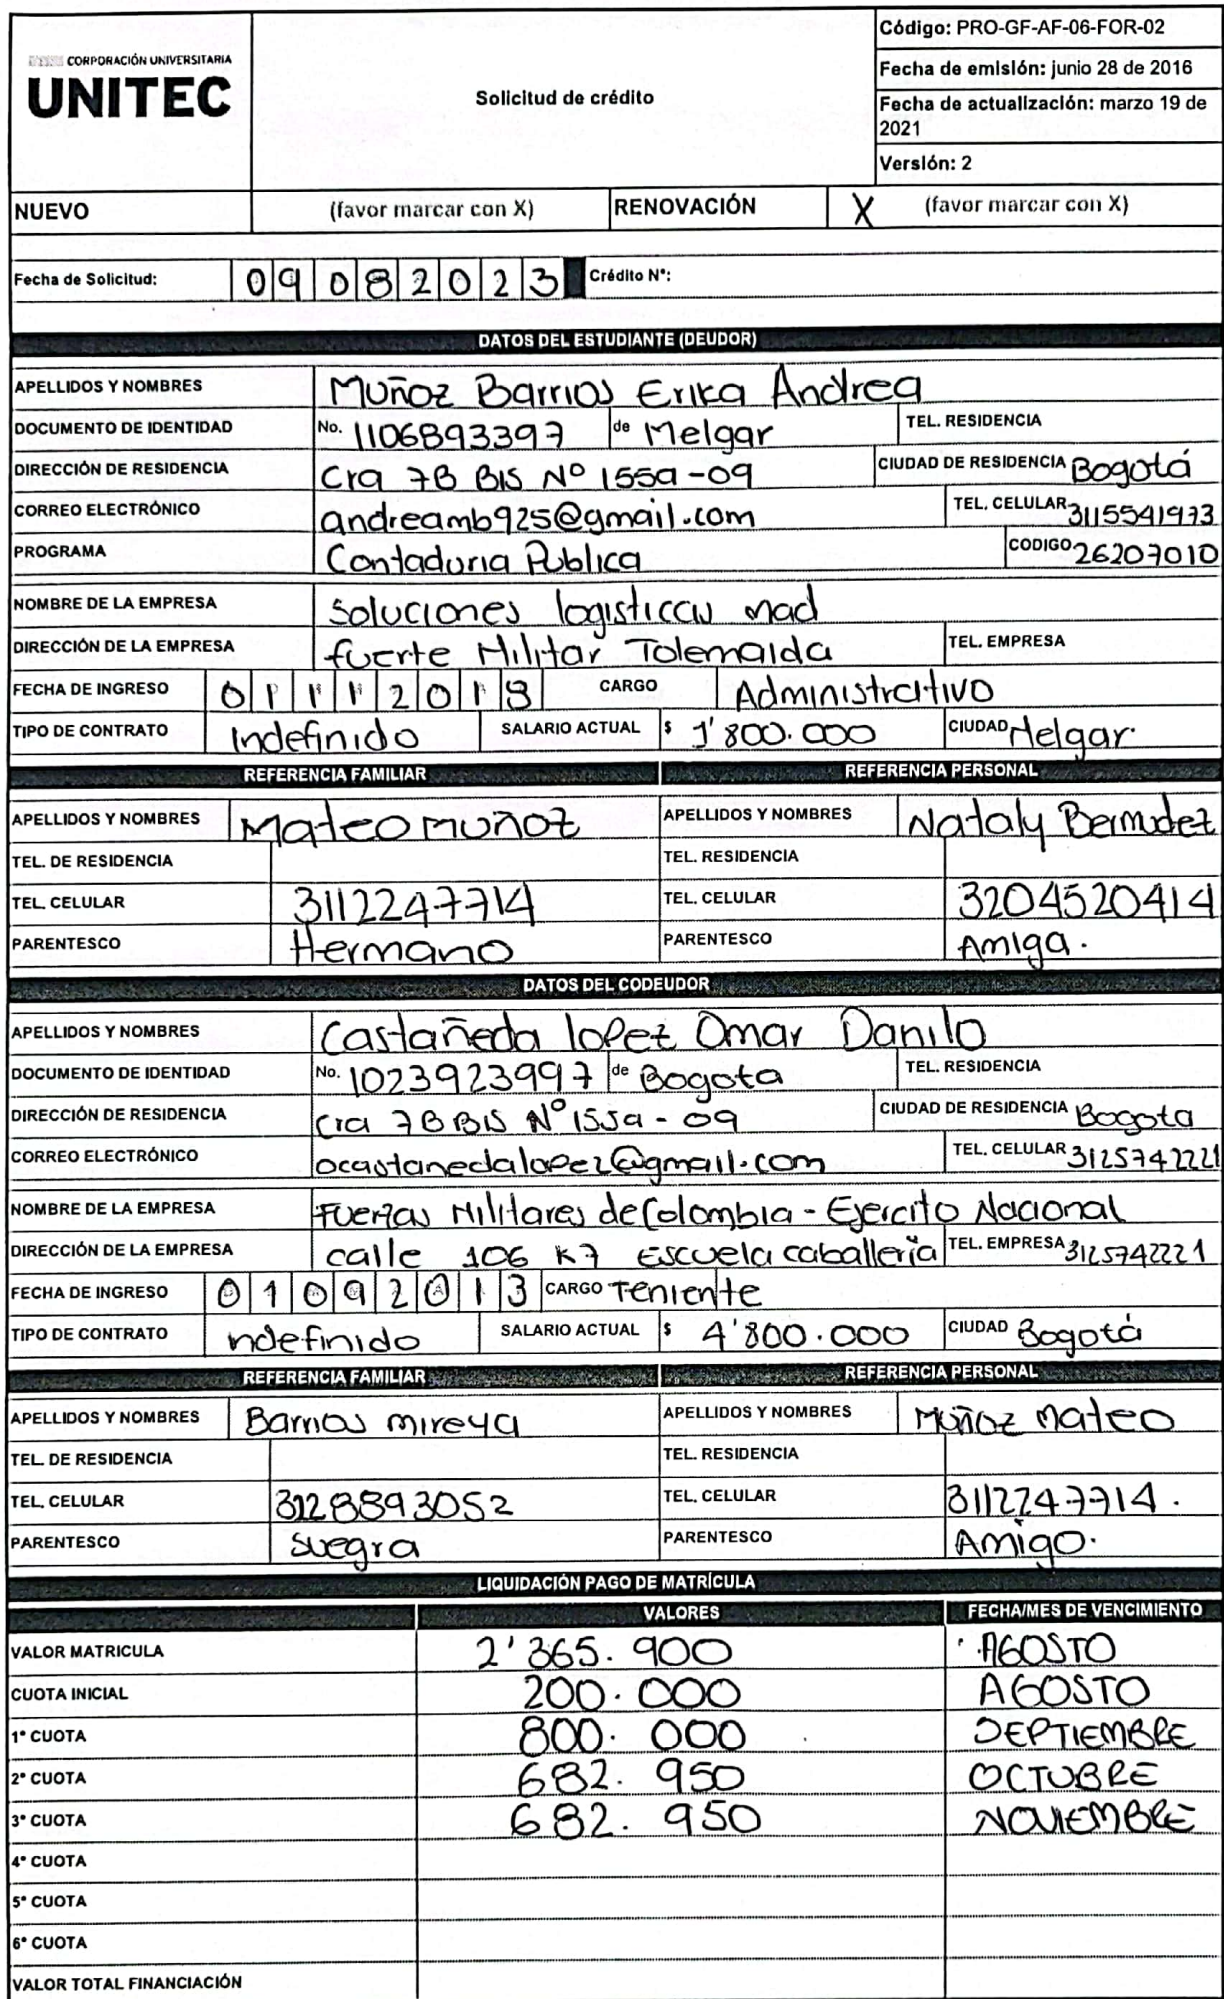 CORPORACIÓN UNIVERSITARIA
UNITEC
Solicitud de crédito
Código: PRO-GF-AF-06-FOR-02
Fecha de emisión: junio 28 de 2016
Fecha de actualización: marzo 19 de
2021
Versión: 2
NUEVO (favor marcar con X) RENOVACIÓN X (favor marcar con X)
Fecha de Solicitud: 09082023 Crédito N°:
DATOS DEL ESTUDIANTE (DEUDOR)
APELLIDOS Y NOMBRES Muñoz Barrios Erika Andrea
DOCUMENTO DE IDENTIDAD No. 1106893397 de Melgar TEL. RESIDENCIA
DIRECCIÓN DE RESIDENCIA Cra 7B BIS N° 155a-09 CIUDAD DE RESIDENCIA Bogotá
CORREO ELECTRÓNICO andreamb925@gmail.com TEL. CELULAR 3115541973
PROGRAMA Contaduria Publica CODIGO 26207010
NOMBRE DE LA EMPRESA Soluciones logisticas mad
DIRECCIÓN DE LA EMPRESA fuerte Militar Tolemaida TEL. EMPRESA
FECHA DE INGRESO 01112018 CARGO Administrativo
TIPO DE CONTRATO Indefinido SALARIO ACTUAL $ 1'800.000 CIUDAD Melgar.
REFERENCIA FAMILIAR REFERENCIA PERSONAL
APELLIDOS Y NOMBRES Mateo muñoz APELLIDOS Y NOMBRES Nataly Bermudez
TEL. DE RESIDENCIA TEL. RESIDENCIA
TEL. CELULAR 3112247714 TEL. CELULAR 3204520414
PARENTESCO Hermano PARENTESCO Amiga.
DATOS DEL CODEUDOR
APELLIDOS Y NOMBRES Castañeda lopez Omar Danilo
DOCUMENTO DE IDENTIDAD No. 1023923997 de Bogota TEL. RESIDENCIA
DIRECCIÓN DE RESIDENCIA Cra 7B BIS N° 155a-09 CIUDAD DE RESIDENCIA Bogota
CORREO ELECTRÓNICO ocastanedalopez@gmail.com TEL. CELULAR 3125742221
NOMBRE DE LA EMPRESA Fuerzas Militares de Colombia - Ejercito Nacional
DIRECCIÓN DE LA EMPRESA calle 106 K7 Escuela caballería TEL. EMPRESA 3125742221
FECHA DE INGRESO 01092013 CARGO Teniente
TIPO DE CONTRATO indefinido SALARIO ACTUAL $ 4'800.000 CIUDAD Bogotá
REFERENCIA FAMILIAR REFERENCIA PERSONAL
APELLIDOS Y NOMBRES Barrios mireya APELLIDOS Y NOMBRES Muñoz Mateo
TEL. DE RESIDENCIA TEL. RESIDENCIA
TEL. CELULAR 3128893052 TEL. CELULAR 3112247714.
PARENTESCO Suegra PARENTESCO Amigo.
LIQUIDACIÓN PAGO DE MATRÍCULA
VALORES FECHA/MES DE VENCIMIENTO
VALOR MATRICULA 2'365.900 AGOSTO
CUOTA INICIAL 200.000 AGOSTO
1° CUOTA 800.000 SEPTIEMBRE
2° CUOTA 682.950 OCTUBRE
3° CUOTA 682.950 NOVIEMBRE
4° CUOTA
5° CUOTA
6° CUOTA
VALOR TOTAL FINANCIACIÓN